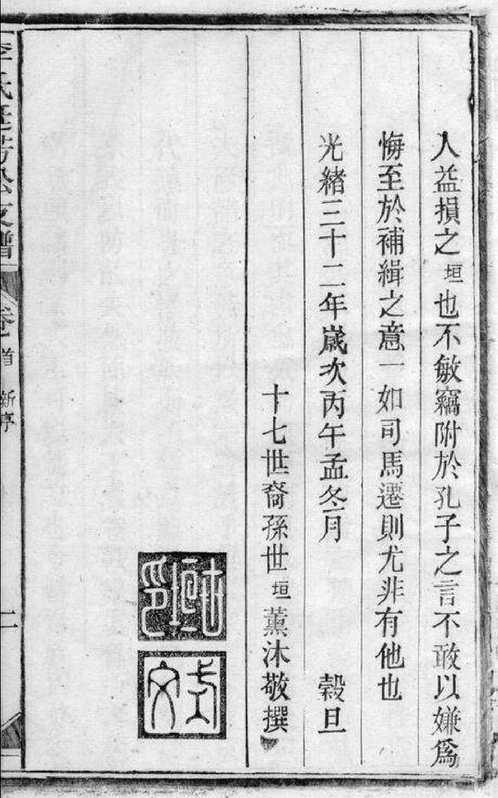 人益損之垣也不敏竊附於孔子之言不敢以嫌爲
悔至於補緝之意一如司馬遷則尤非有他也
光緒三十二年歲次丙午孟冬月 穀旦
十七世裔孫世垣薰沐敬撰
李氏廷芳公支譜 卷首 新序 二